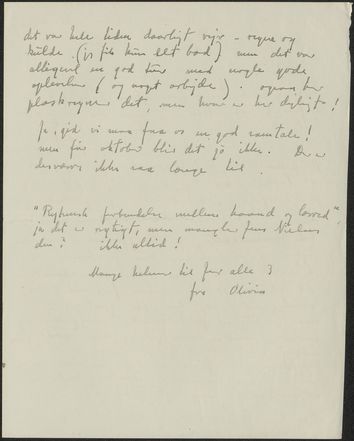 det var hele tiden daarligt vejr – regn og
kulde. (jeg fik kun eet bad) men det var
alligevel en god tur med nogle gode
oplevelser (og noget arbejde). ogsaa her
plaskregner det, men hvor er her dejligt!
Ja, gid vi maa faa os en god samtale!
men før oktober blir det jo ikke. Der er
desværre ikke saa længe til.
"Rytmisk forbindelse mellem haand og lærred",
ja det er rigtigt, men mangler Nielsen
den? ikke altid!
Mange hilsner til jer alle 3
fra Olivia